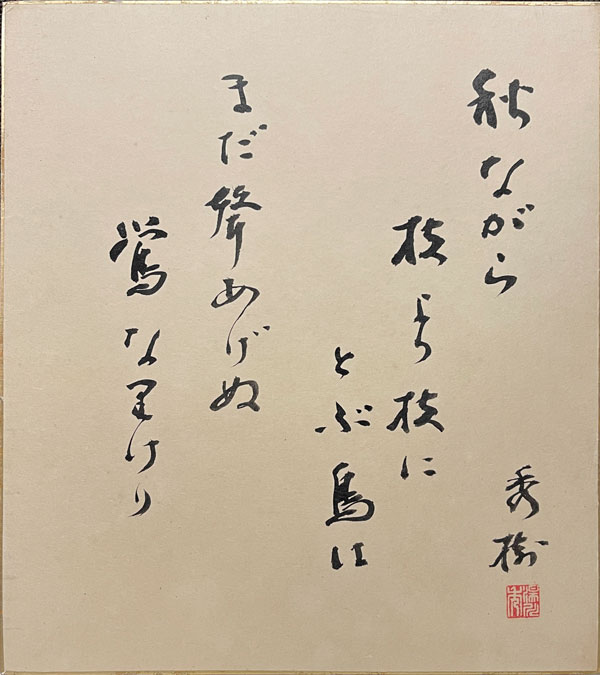 秋ながら
枝より枝に
とぶ鳥は
まだ聲あげぬ
鶯なりけり
秀樹